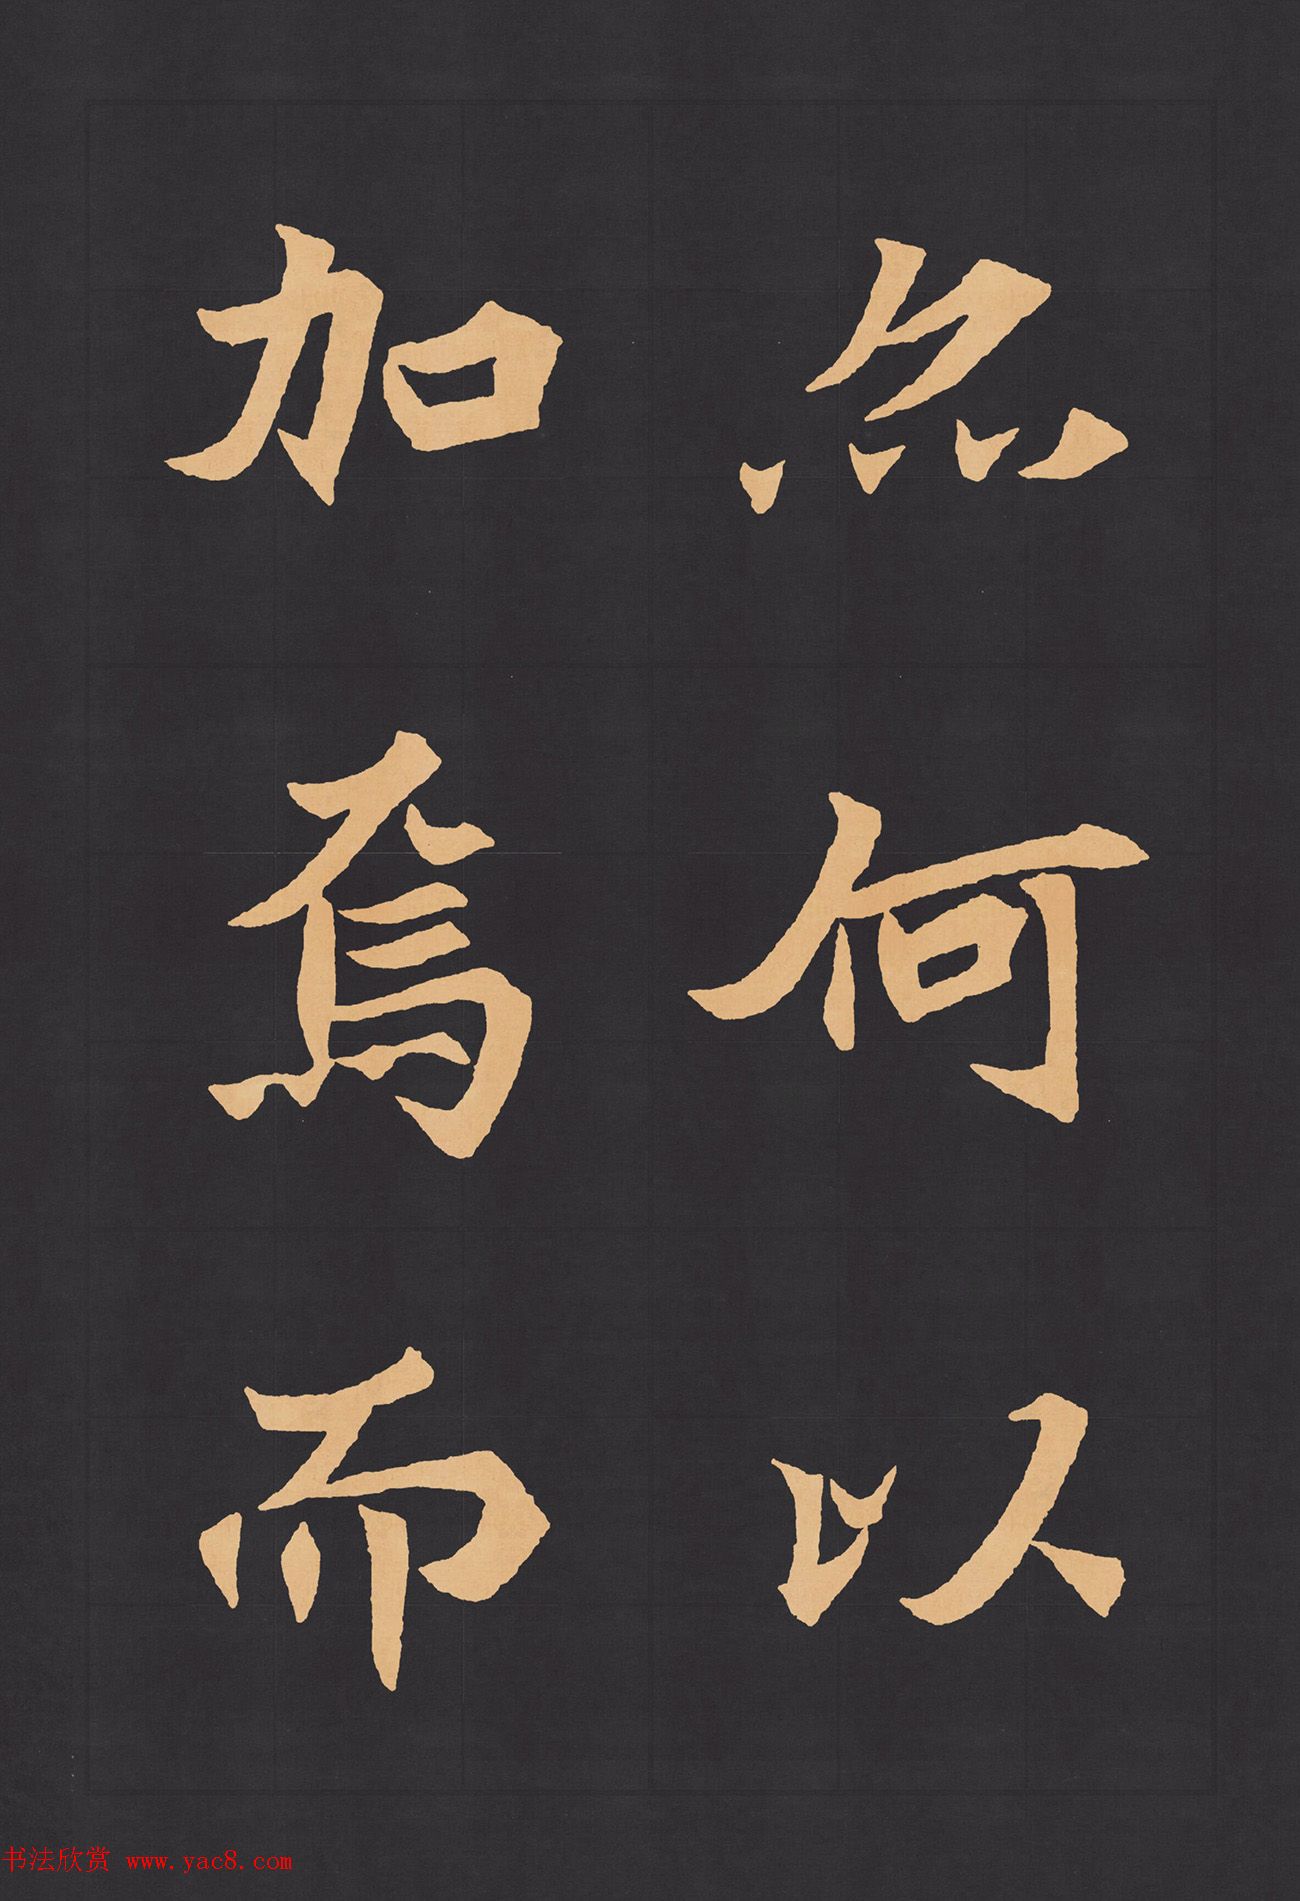 何以
加焉而
书法欣赏 www.yac8.com